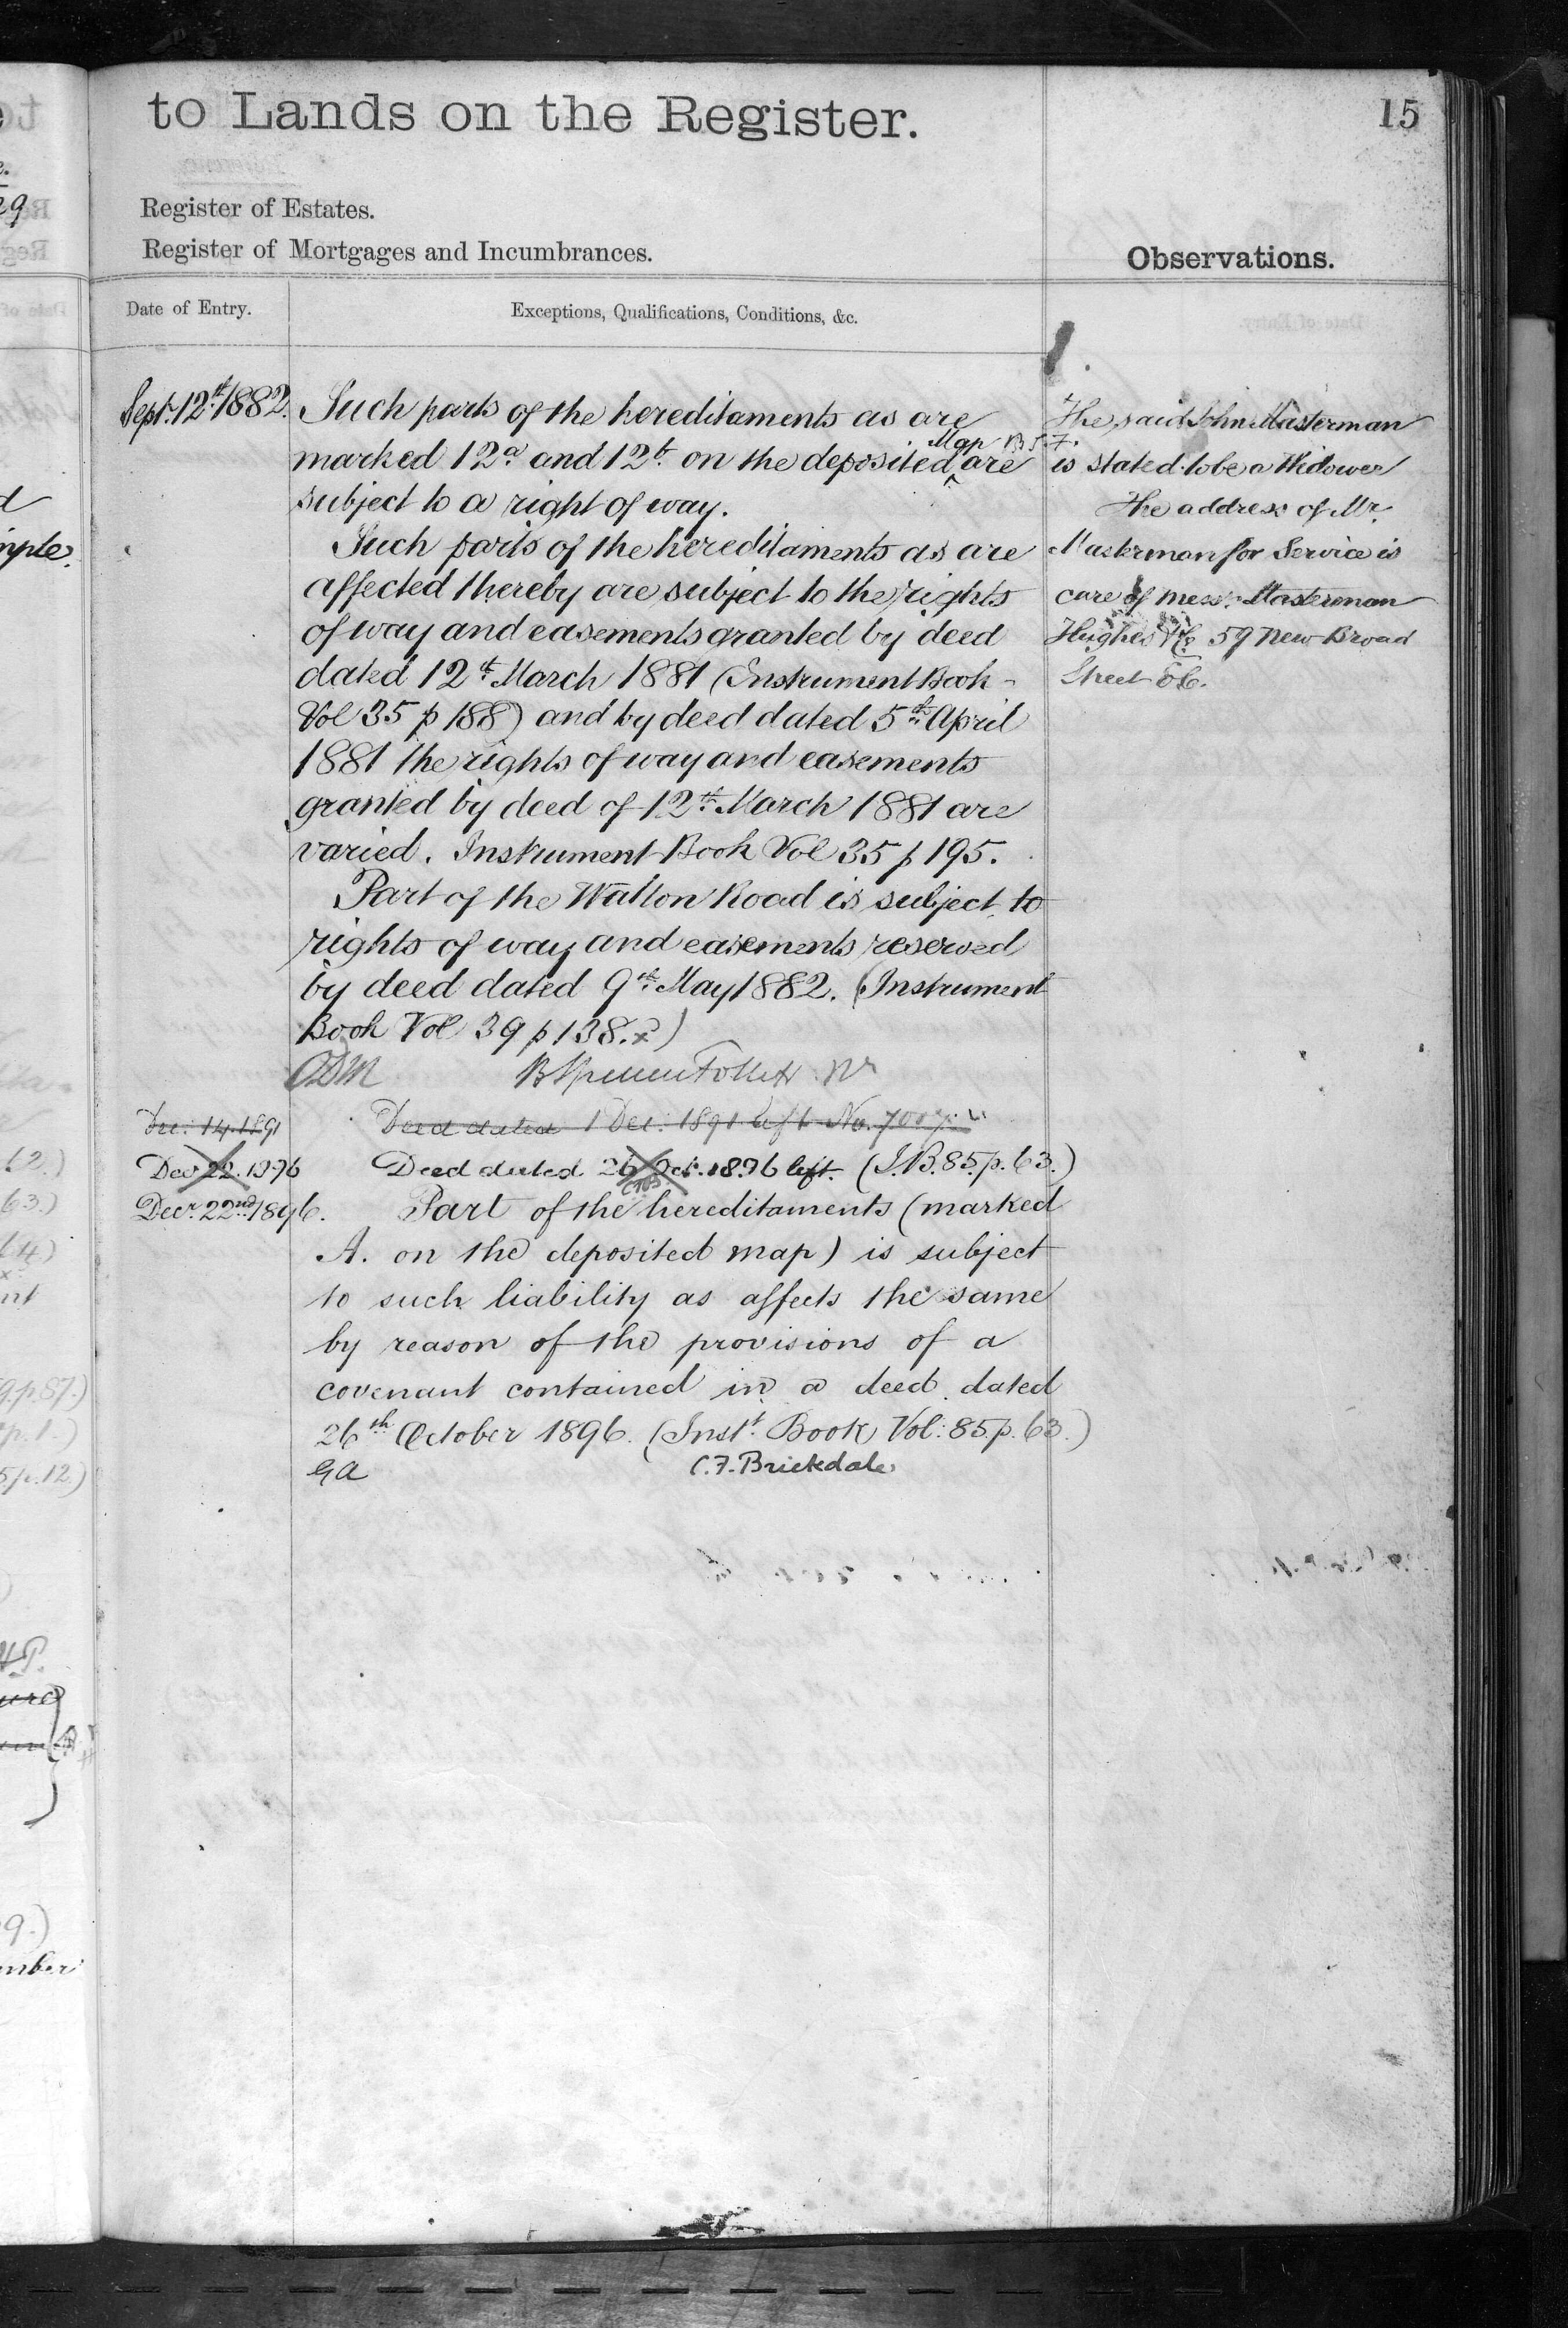 to Lands on the Register.
15
Register of Estates.
Register of Mortgages and Incumbrances.
Observations.
Date of Entry.
Exceptions, Qualifications, Conditions, &c.
Sept. 12th 1882.
Such parts of the hereditaments as are
Map B.S.F.
marked 12a and 12b on the deposited ^ are
subject to a right of way.
Such parts of the hereditaments as are
affected thereby are subject to the rights
of way and easements granted by deed
dated 12th March 1881 (Instrument Book
Vol 35 p 188) and by deed dated 5th April
1881 the rights of way and easements
granted by deed of 12th March 1881 are
varied. Instrument Book Vol 35 p 195.
Part of the Walton Road is subject to
rights of way and easements reserved
by deed dated 9th May 1882. (Instrument
Book Vol 39 p 138.)
The said John Masterman
is stated to be a Widower
The address of Mr.
Masterman for Service is
care of Messrs. Masterman
Hughes &c. 59 New Broad
Street E.C.
Dec: 14. 1891
Deed dated 1 Dec: 1891 left No. 7007
Dec 22. 1896
Deed dated 26 Oct. 1896 left. (I.B. 85. p. 63.)
Decr. 22nd 1896.
Part of the hereditaments (marked
A. on the deposited map) is subject
to such liability as affects the same
by reason of the provisions of a
covenant contained in a deed dated
26th October 1896. (Inst. Book Vol: 85. p. 63.)
GA
C.F. Brickdale